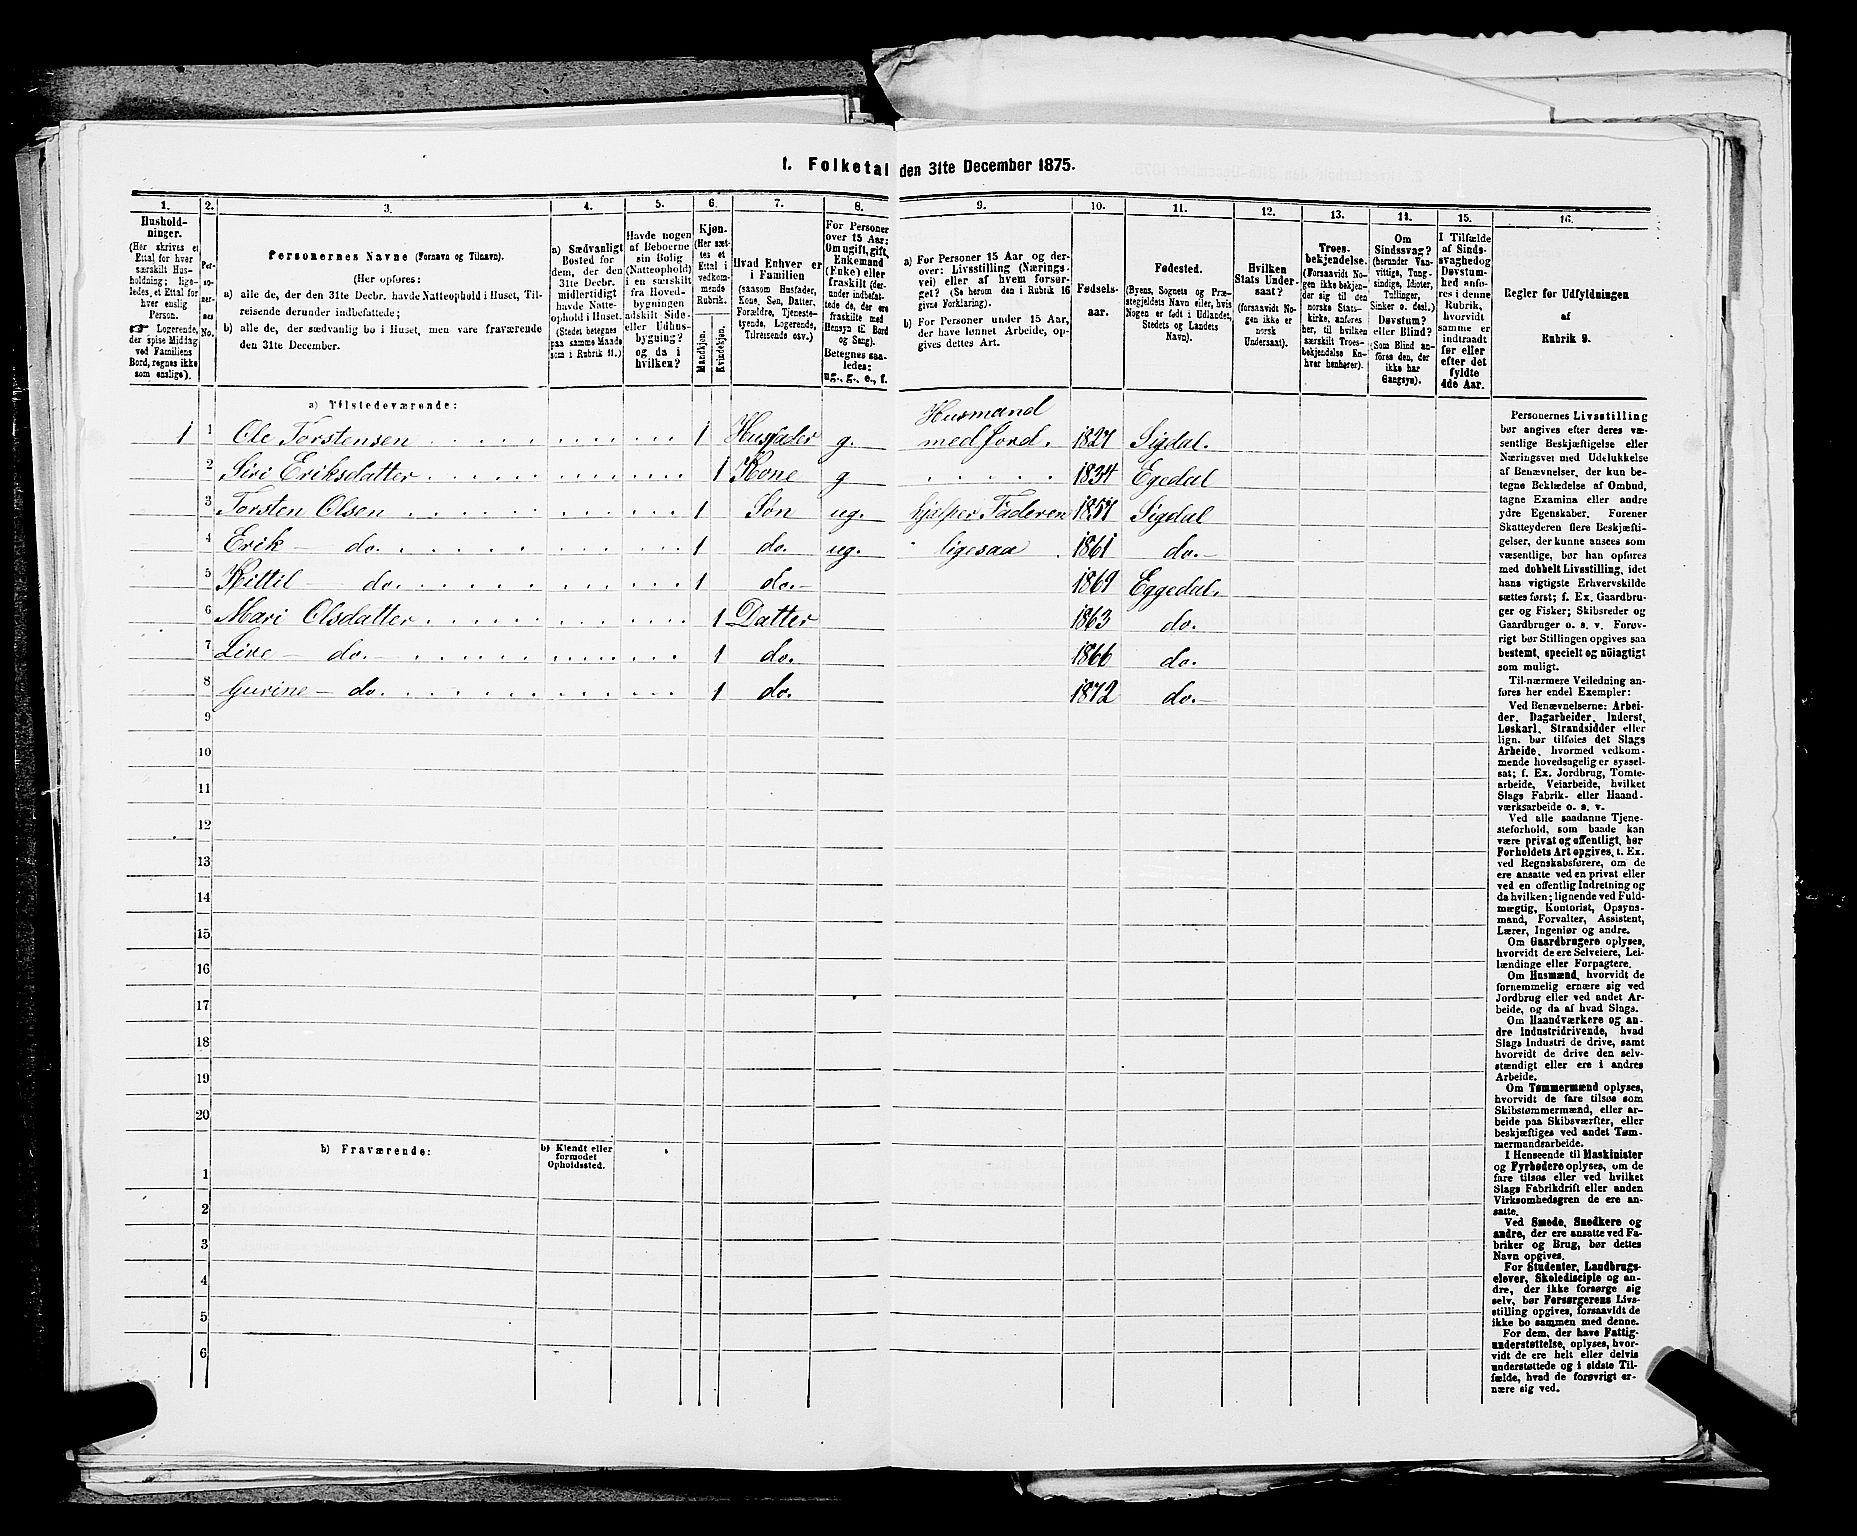 1. Folketal den 31te December 1875.
1. 2. 3. 4. 5. 6. 7. 8. 9. 10. 11. 12. 13. 14. 15. 16.
Hushold-
ninger.
(Her skrives et
Ettal for hver
særskilt Hus-
holdning; lige-
ledes, et Ettal for
hver enslig
Person.
☞ Logerende,
der spise Middag
ved Familiens
Bord, regnes ikke
som enslige).
Per-
so-
ner-
nes
No.
Personernes Navne (Fornavn og Tilnavn).
(Her opføres:
a) alle de, der den 31te Decbr. havde Natteophold i Huset, Til-
reisende derunder indbefattede;
b) alle de, der sædvanlig bo i Huset, men vare fraværende
den 31te December.
a) Sædvanligt
Bosted for
dem, der den
31te Decbr.
midlertidigt
havde Natte-
ophold i Huset.
(Stedet betegnes
paa samme Maade
som i Rubrik 11.)
Havde nogen
af Beboerne
sin Bolig
(Natteophold)
i en særskilt
fra Hoved-
bygningen
adskilt Side-
eller Udhus-
bygning?
og da i
hvilken?
Kjøn.
(Her sæt-
tes et
Ettal i
vedkom-
mende
Rubrik.
Mandkjøn.
Kvindekjøn.
Hvad Enhver er
i Familien
(saasom Husfader,
Kone, Søn, Datter,
Forældre, Tjeneste-
tyende, Logerende,
Tilreisende osv.)
For Personer
over 15 Aar:
Om ugift, gift,
Enkemand
(Enke) eller
fraskilt (der-
under indbefat-
tede de, der ere
fraskilte med
Hensyn til Bord
og Seng).
Betegnes saa-
ledes:
ug., g., e., f.
a) For Personer 15 Aar og der-
over: Livsstilling (Nærings-
vei) eller af hvem forsør-
get? (Se herom den i Rubrik 16
givne Forklaring).
b) For Personer under 15 Aar,
der have lønnet Arbeide, op-
gives dettes Art.
Fødsels-
aar.
Fødested.
(Byens, Sognets og Præ-
stegjeldets Navn eller, hvis
Nogen er født i Udlandet,
Stedets og Landets
Navn).
Hvilken
Stats Under-
saat?
(forsaavidt No-
gen ikke er
norsk
Undersaat).
Troes-
bekjendelse.
(Forsaavidt No-
gen ikke bekjen-
der sig til den
norske Stats-
kirke, anføres
her, til hvilken
særskilt Troes-
bekjendelse En-
hver henhører).
Om
Sindssvag?
(herunder Van-
vittige, Tung-
sindige, Idioter,
Tullinger,
Sinker o. desl.)
Døvstum?
eller Blind?
(Som Blind an-
føres den, der
ikke har
Gangsyn).
I Tilfælde
af Sinds-
svaghed og
Døvstum-
hed anfø-
res i denne
Rubrik,
hvorvidt
samme er
indtraadt
før eller
efter det
fyldte
4de Aar.
Regler for Udfyldningen
af
Rubrik 9.
a) Tilstedeværende:
1 1 Ole Torstensen 1 Husfader g. Husmand med Jord. 1827 Sigdal.
2 Siri Eriksdatter 1 Kone g 1834 Egedal
3 Torsten Olsen 1 Søn ug. hjelper Faderen 1857 Sigdal
4 Erik - do. 1 do. ug. ligesaa 1861 do.-
5 Kittil - do. 1 do.- 1869 Eggedal.
6 Mari Olsdatter 1 Datter 1863 do.
7 Live - do. - 1 do. 1866 do.
8 Gurine - do. 1 do. 1872 do.-
9
10
11
12
13
14
15
16
17
18
19
20
b) Fraværende:
b) Kjendt eller
formodet
Opholdssted.
1
2
3
4
5
6
Personernes Livsstilling
bør angives efter deres væ-
sentlige Beskjæftigelse eller
Næringsvei med Udelukkelse
af Benævnelser, der kun be-
tegne Beklædelse af Ombud,
tagne Examina eller andre
ydre Egenskaber. Forener
Skatteyderen flere Beskjæfti-
gelser, der kunne ansees som
væsentlige, bør han opføres
med dobbelt Livsstilling, idet
hans vigtigste Erhvervskilde
sættes først; f. Ex. Gaardbru-
ger og Fisker; Skibsreder og
Gaardbruger o. s. v. Forøv-
rigt bør Stillingen opgives saa
bestemt, specielt og nøiagtigt
som muligt.
Til nærmere Veiledning an-
føres her endel Exempler:
Ved Benævnelserne: Arbei-
der, Dagarbeider, Inderst,
Løskarl, Strandsidder eller
lign. bør tilføies det Slags
Arbeide, hvormed vedkom-
mende hovedsagelig er syssel-
sat; f. Ex. Jordbrug, Tomte-
arbeide, Veiarbeide, hvilket
Slags Fabrik- eller Haand-
værksarbeide o. s. v.
Ved alle saadanne Tjene-
steforhold, som baade kan
være privat og offentligt, bør
Forholdets Art opgives, t. Ex.
ved Regnskabsførere, om de
ere ansatte ved en privat eller
ved en offentlig Indretning og
da hvilken; lignende ved Fuld-
mægtig, Kontorist, Opsyns-
mand, Forvalter, Assistent,
Lærer, Ingeniør og andre.
Om Gaardbrugere oplyses,
hvorvidt de ere Selveiere, Lei-
lændinge eller Forpagtere.
Om Husmænd, hvorvidt de
fornemmelig ernære sig ved
Jordbrug eller ved andet Ar-
beide, og da af hvad Slags.
Om Haandværkere og an-
dre Industridrivende, hvad
Slags Industri de drive, samt
hvorvidt de drive den selv-
stændigt eller ere i andres
Arbeide.
Om Tømmermænd oplyses,
hvorvidt de fare tilsøs som
Skibstømmermænd, eller ar-
beide paa Skibsværfter, eller
beskjæftiges ved andet Tøm-
mermandsarbeide.
I Henseende til Maskinister
og Fyrbødere oplyses, om de
fare tilsøs eller ved hvilket
Slags Fabrikdrift eller anden
Virksomhedsgren de ere an-
satte.
Ved Smede, Snedkere og
andre, der ere ansatte ved Fa-
briker og Brug, bør dettes
Navn opgives.
For Studenter, Landbrugs-
elever, Skoledisciple og an-
dre, der ikke forsørge sig
selv, bør Forsørgerens Livs-
stilling opgives, forsaavidt de
ikke bo sammen med denne.
For dem, der have Fattig-
understøttelse, oplyses, hvor-
vidt de ere helt eller delvis
understøttede og i sidste Til-
fælde, hvad de forøvrigt er-
nære sig ved.